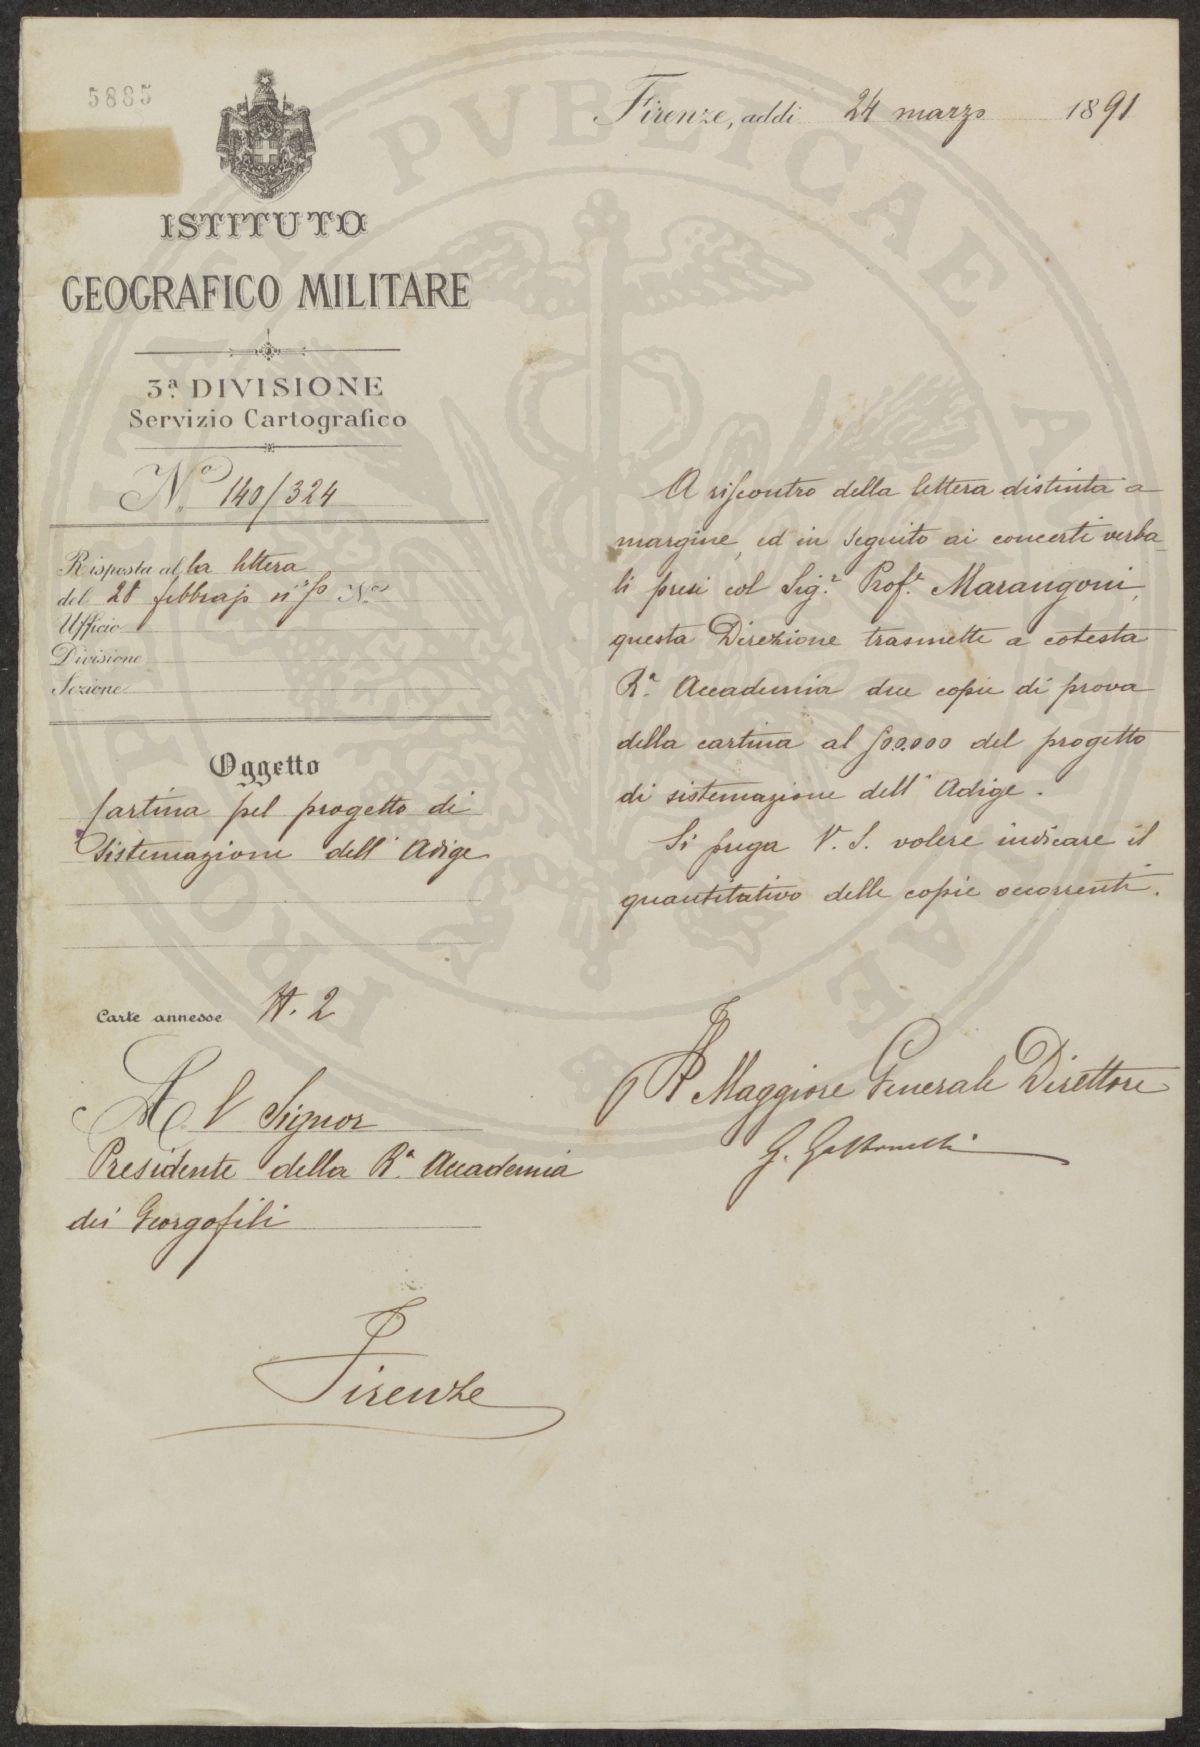 5885
Firenze, addì 24 marzo 1891
ISTITUTO
GEOGRAFICO MILITARE
3ª DIVISIONE
Servizio Cartografico
N.º 140/324
Risposta alla lettera
del 28 febbrajo N.º
Ufficio
Divisione
Sezione
Oggetto
Cartina pel progetto di
Sistemazione dell' Adige
Carte annesse N. 2
Al Signor
Presidente della R.ª Accademia
dei Georgofili
Firenze
A riscontro della lettera distinta a
margine, ed in seguito ai concerti verba-
li presi col Sig.r Prof.r Marangoni,
questa Direzione trasmette a cotesta
R.ª Accademia due copie di prova
della cartina al 500.000 del progetto
di sistemazione dell' Adige.
Si prega V. S. volere indicare il
quantitativo delle copie occorrenti.
Il Maggiore Generale Direttore
PROSPERITATI PVBLICAE AVGENDAE